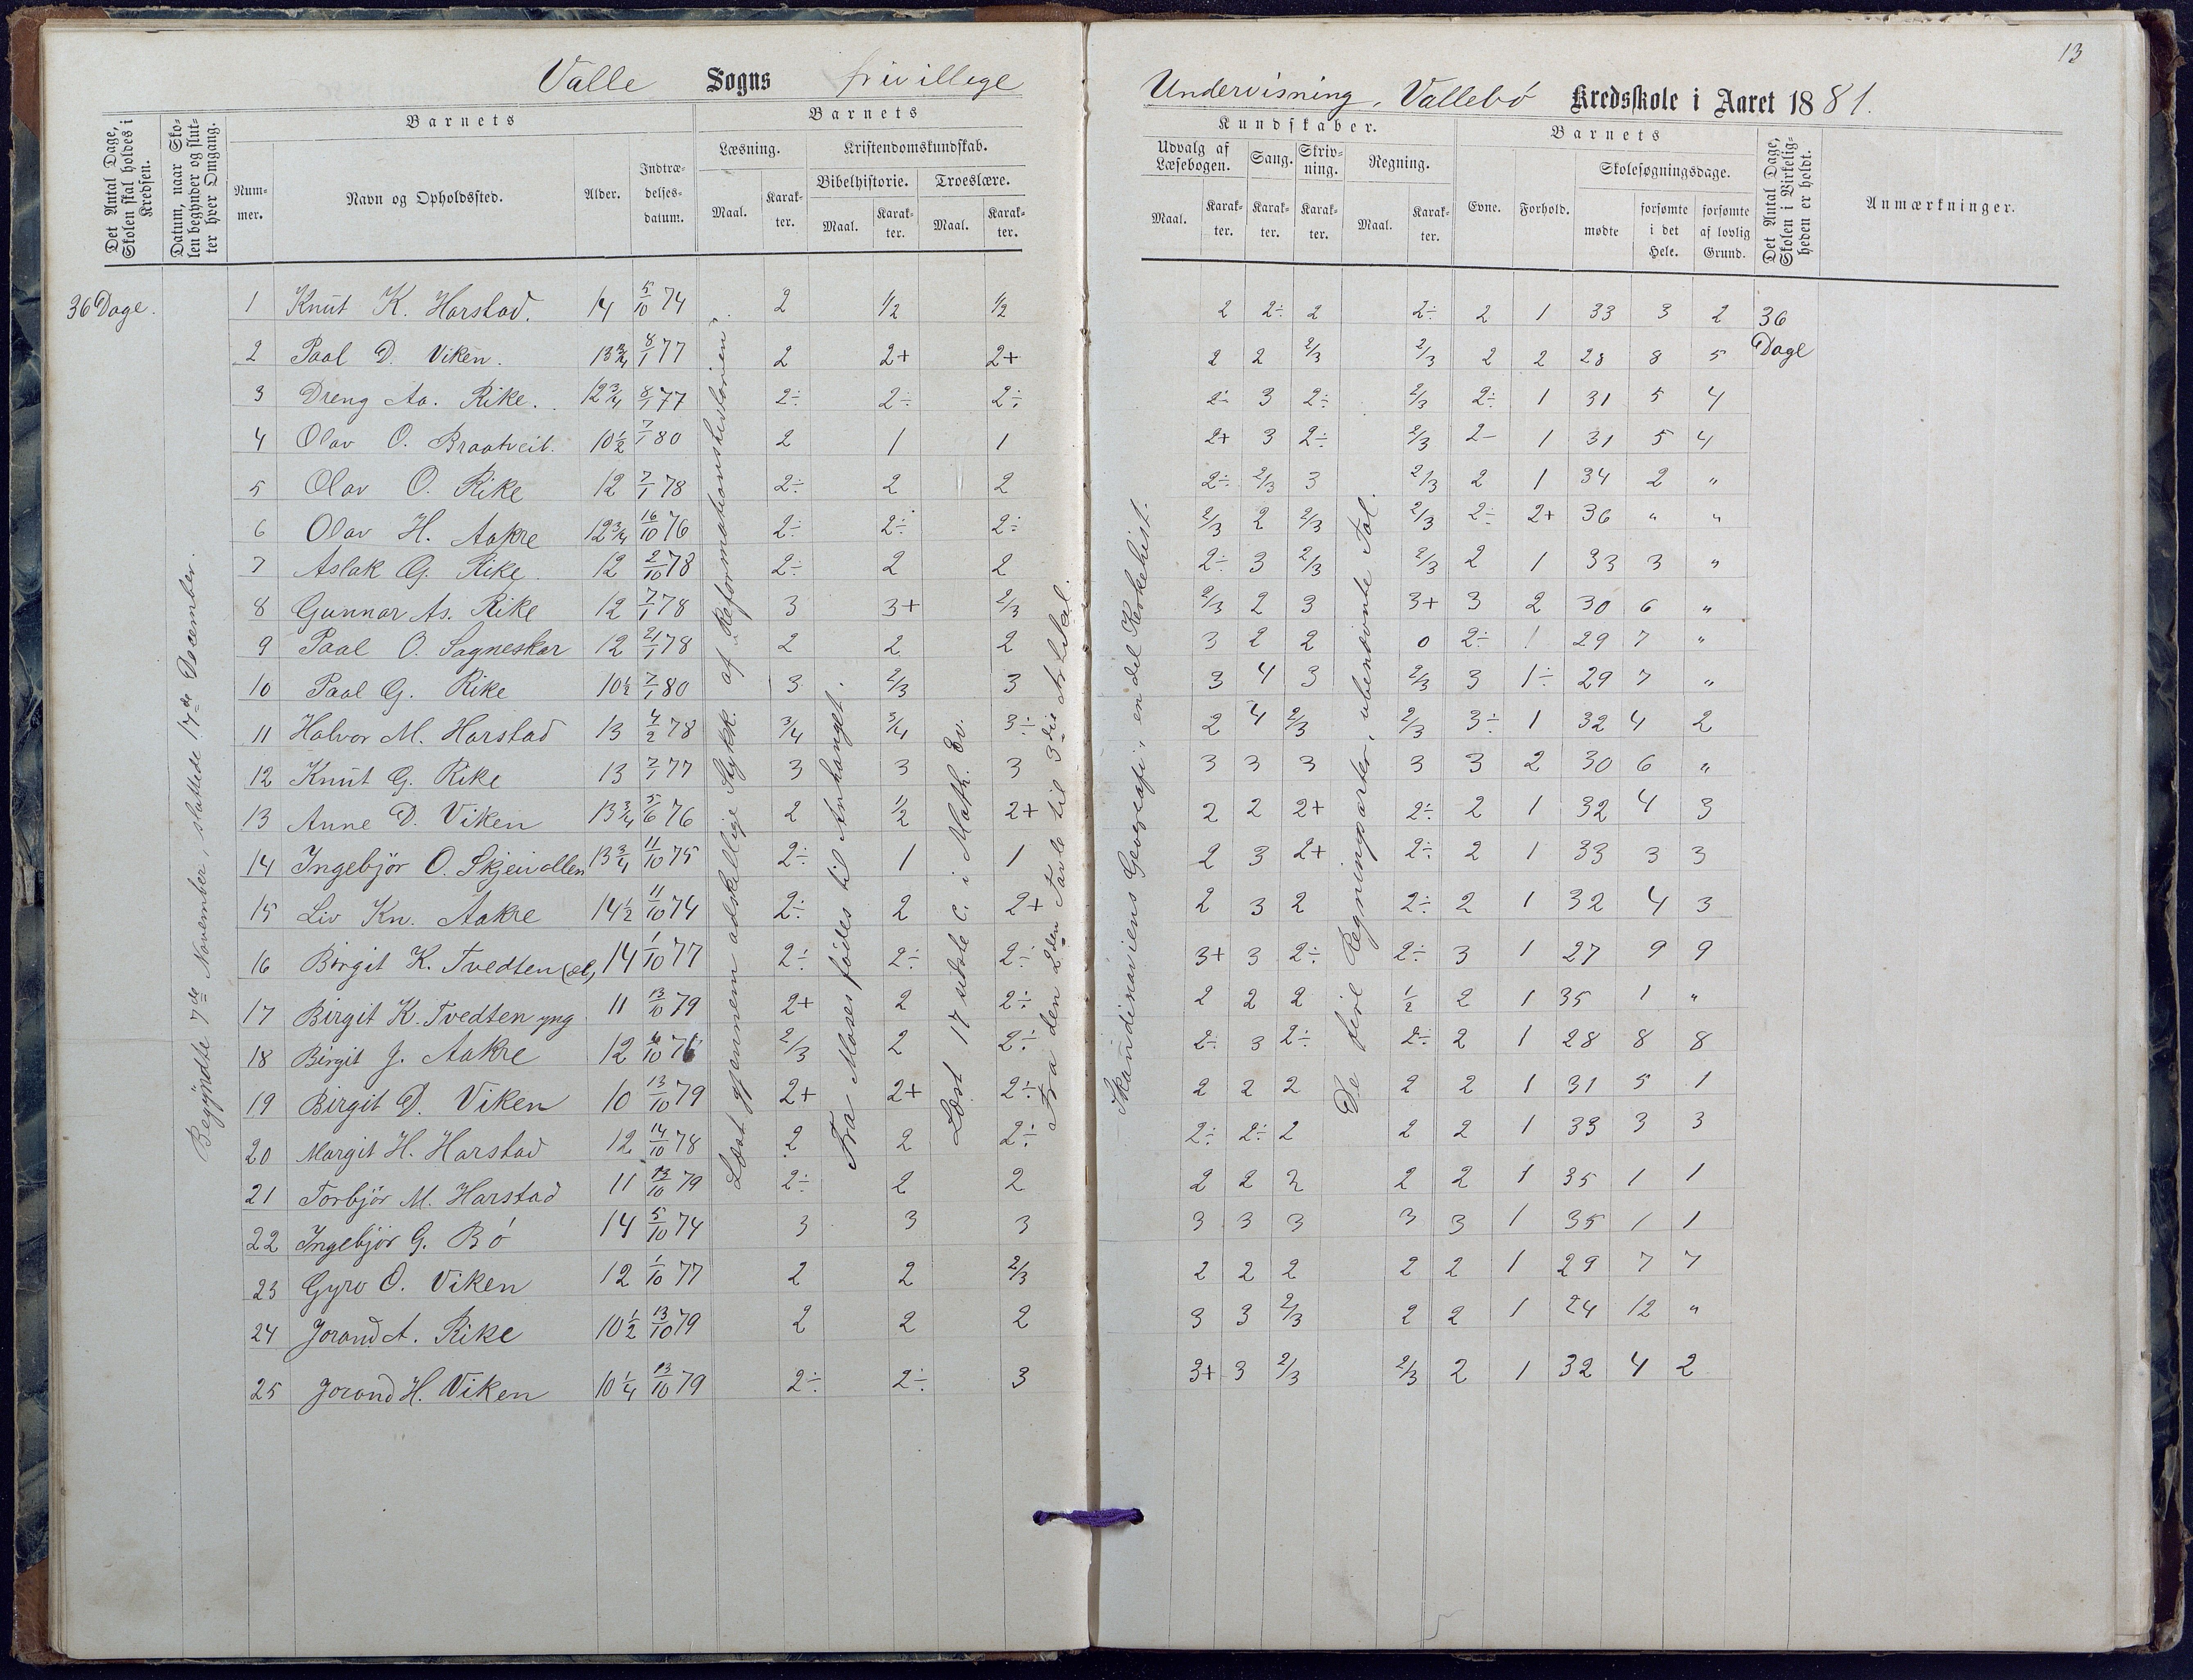 13
Valle Sogns frivillege Undervisning, Vallebö Kredsskole i Aaret 1881.
Det Antal Dage, Skolen skal holdes i Kredsen.
Datum, naar Skolen begynder og slutter hver Omgang.
Barnets
Nummer.
Navn og Opholdssted.
Alder.
Indtrædelsesdatum.
Barnets
Læsning.
Maal.
Karakter.
Kristendomskundskab.
Bibelhistorie.
Maal.
Karakter.
Troeslære.
Maal.
Karakter.
Kundskaber.
Udvalg af Læsebogen.
Maal.
Karakter.
Sang.
Karakter.
Skrivning.
Karakter.
Regning.
Maal.
Karakter.
Barnets
Evne.
Forhold.
Skolesøgningsdage.
mødte
forsømte i det Hele.
forsømte af lovlig Grund.
Det Antal Dage, Skolen i Virkeligheden er holdt.
Anmærkninger.
36 Dage.
Begyndte 7de November, sluttede 17de December.
Læst gjennem adskellige Stykk. af "Reformationshistorien".
Fra Moses födes til Anhanget.
Læst 17 sidste C. i Math. Ev.
Fra den 2den Tavle til 3die Artikal.
Skandinaviens Geografi, en del Kirkehist.
De fire Regningsarter, ubenævnte Tal.
36 Dage
1 Knut K. Harstad. 14 5/10 74 2 1/2 1/2 2 2÷ 2 2÷ 2 1 33 3 2
2 Paal D. Viken. 13 3/4 8/1 77 2 2+ 2+ 2 2 2/3 2/3 2 2 28 8 5
3 Dreng Aa. Rike. 12 3/4 8/1 77 2÷ 2÷ 2÷ 2÷ 3 2÷ 2/3 2÷ 1 31 5 4
4 Olav O. Braatveit. 10 1/2 7/1 80 2 1 1 2+ 3 2÷ 2/3 2- 1 31 5 4
5 Olav O. Rike 12 7/1 78 2÷ 2 2 2÷ 2/3 3 2/3 2 1 34 2 "
6 Olav H. Aakre 12 3/4 16/10 76 2÷ 2÷ 2÷ 2/3 2 2/3 2/3 2÷ 2+ 36 " "
7 Aslak G. Rike. 12 2/10 78 2÷ 2 2 2÷ 3 2/3 2/3 2 1 33 3 "
8 Gunnar As. Rike 12 7/1 78 3 3+ 2/3 2/3 2 3 3+ 3 2 30 6 "
9 Paal O. Sagneskar 12 21/1 78 2 2 2 3 2 2 0 2÷ 1 29 7 "
10 Paal G. Rike 10 1/2 7/1 80 3 2/3 3 3 4 3 2/3 3 1÷ 29 7 "
11 Halvor M. Harstad 13 4/2 78 3/4 3/4 3÷ 2 4 2/3 2/3 3÷ 1 32 4 2
12 Knut G. Rike 13 7/1 77 3 3 3 3 3 3 3 3 2 30 6 "
13 Anne D. Viken 13 3/4 5/6 76 2 1/2 2+ 2 2 2+ 2÷ 2 1 32 4 3
14 Ingebjör O. Skjeivollen 13 3/4 11/10 75 2÷ 1 1 2 3 2+ 2÷ 2 1 33 3 3
15 Liv Kn. Aakre 14 1/2 11/10 74 2÷ 2 2+ 2 3 2 2÷ 2 1 32 4 3
16 Birgit K. Tvedten (æl) 14 1/10 77 2÷ 2÷ 2÷ 3+ 3 2÷ 2÷ 3 1 27 9 9
17 Birgit K. Tvedten yng 11 13/10 79 2+ 2 2÷ 2 2 2 1/2 2 1 35 1 "
18 Birgit J. Aakre 12 /10 76 2/3 2 2÷ 2÷ 3 2÷ 2÷ 2 1 28 8 8
19 Birgit D. Viken 10 13/10 79 2+ 2+ 2÷ 2 2 2 2 2 1 31 5 1
20 Margit H. Harstad 12 14/10 78 2 2 2÷ 2÷ 2÷ 2 2 2 1 33 3 3
21 Torbjör M. Harstad 11 13/10 79 2÷ 2 2 2 2 2 2 2 1 35 1 1
22 Ingebjör G. Bö 14 5/10 74 3 3 3 3 3 3 3 3 1 35 1 1
23 Gyro O. Viken 12 1/10 77 2 2 2/3 2 2 2 2 2 1 29 7 7
24 Jorand A. Rike 10 1/2 13/10 79 2 2 2 3 3 2/3 2 2 1 24 12 "
25 Jorand H. Viken 10 1/4 13/10 79 2÷ 2÷ 3 3+ 3 2/3 2/3 2 1 32 4 2